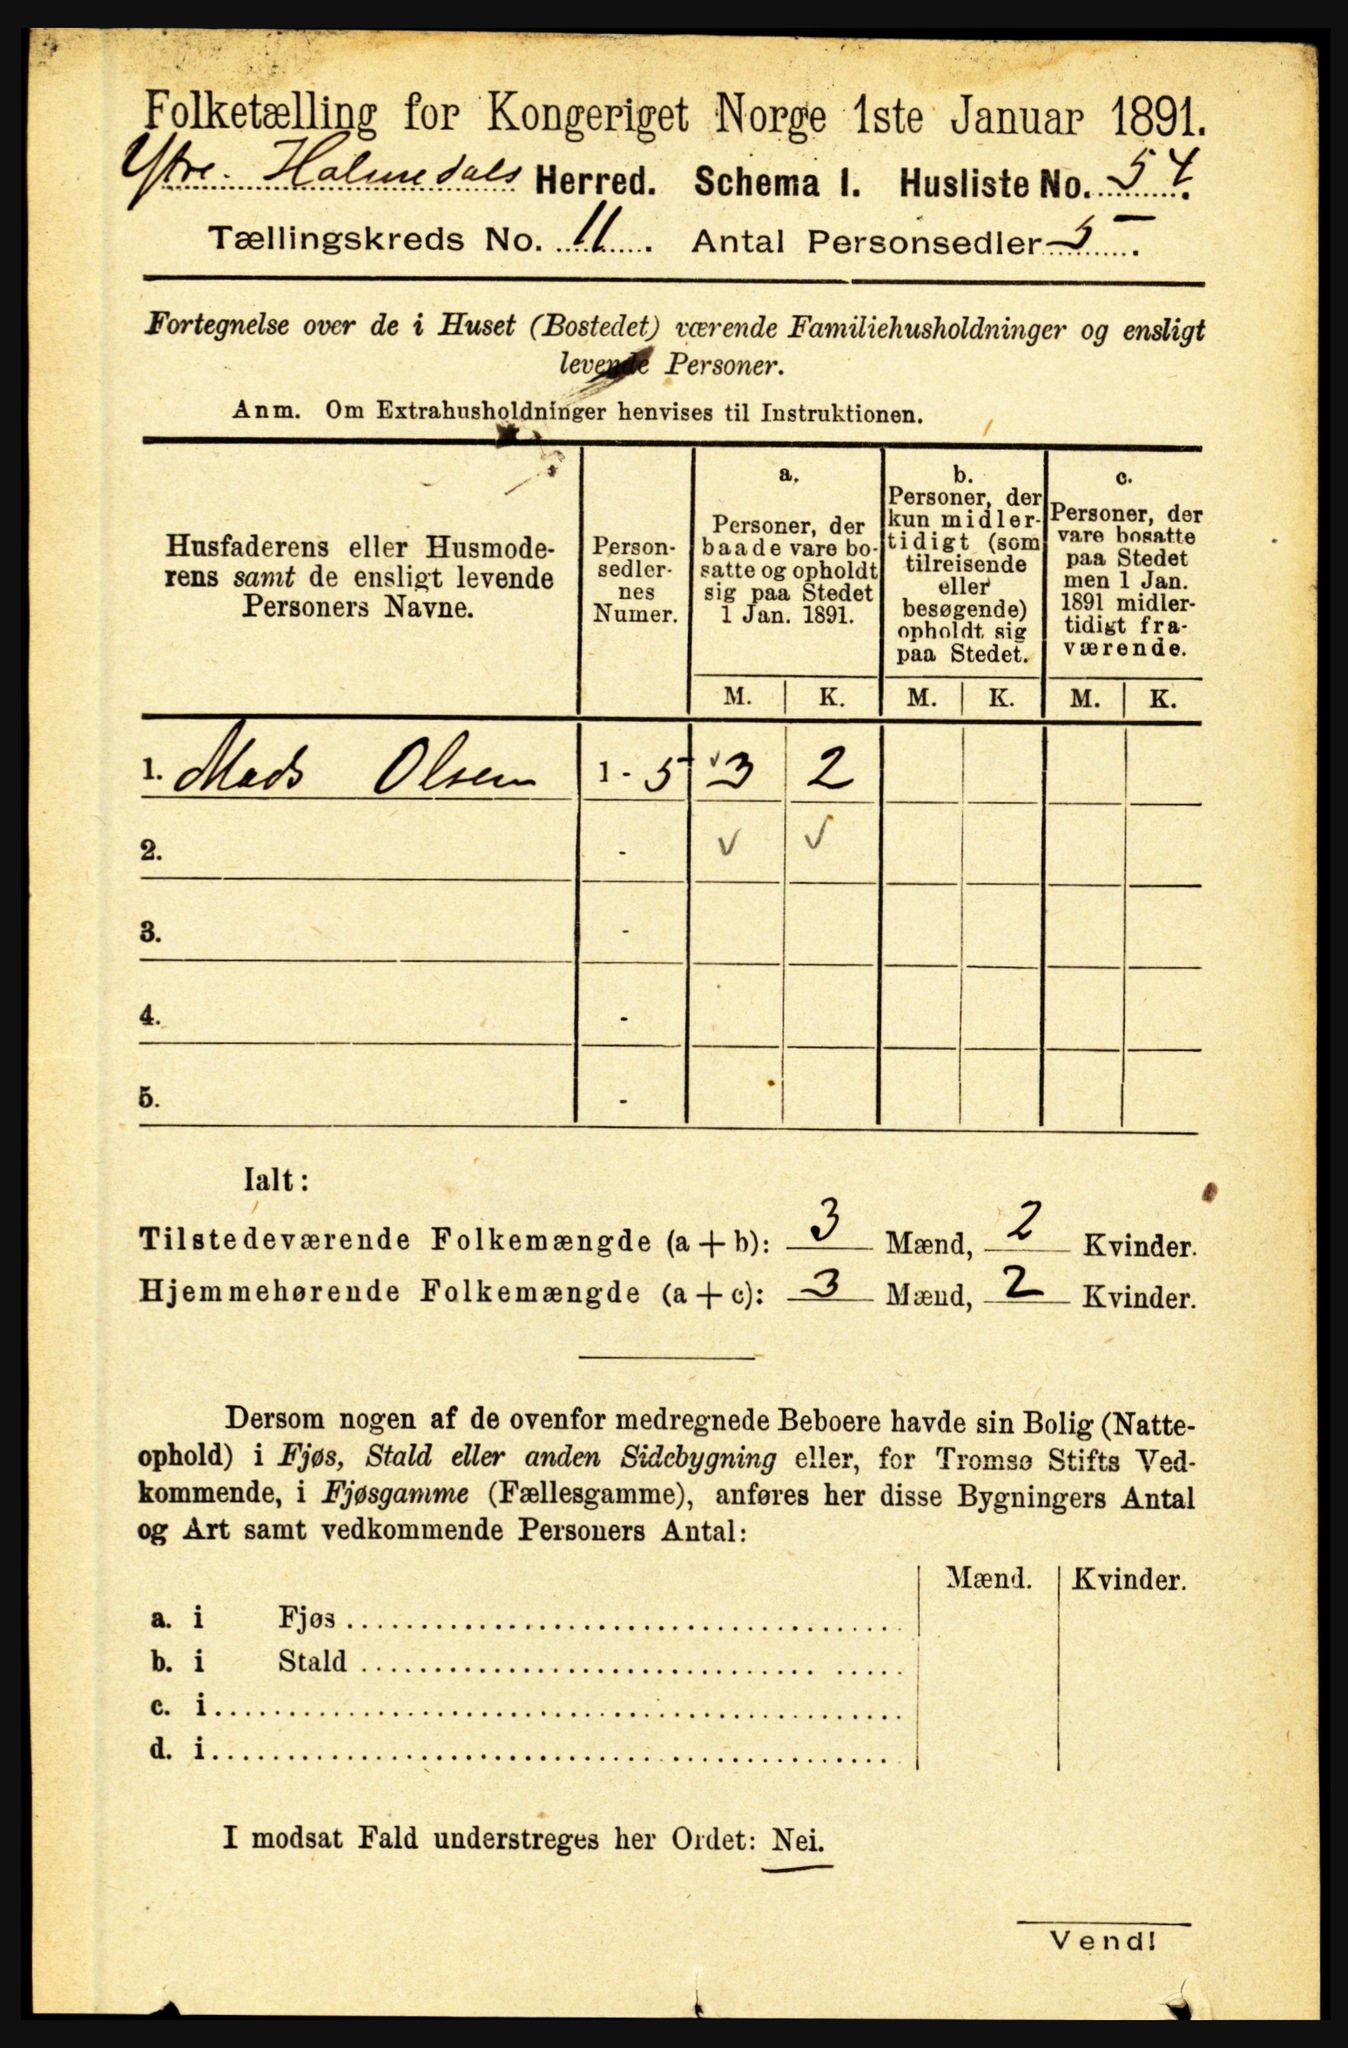 Folketælling for Kongeriget Norge 1ste Januar 1891.
Ytre. Holmedals Herred. Schema I. Husliste No. 54.
Tællingskreds No. 11. Antal Personsedler 5.
Fortegnelse over de i Huset (Bostedet) værende Familiehusholdninger og ensligt
levende Personer.
Anm. Om Extrahusholdninger henvises til Instruktionen.
Husfaderens eller Husmode-
rens samt de ensligt levende
Personers Navne.
Person-
sedler-
nes
Numer.
a.
Personer, der
baade vare bo-
satte og opholdt
sig paa Stedet
1 Jan. 1891.
b.
Personer, der
kun midler-
tidigt (som
tilreisende
eller
besøgende)
opholdt sig
paa Stedet.
c.
Personer, der
vare bosatte
paa Stedet
men 1 Jan.
1891 midler-
tidigt fra-
værende.
M. K. M. K. M. K.
1. Mads Olsen 1 - 5 3 2
2. - ✓ ✓
3. -
4. -
5. -
Ialt:
Tilstedeværende Folkemængde (a + b): 3 Mænd, 2 Kvinder.
Hjemmehørende Folkemængde (a + c): 3 Mænd, 2 Kvinder.
Dersom nogen af de ovenfor medregnede Beboere havde sin Bolig (Natte-
ophold) i Fjøs, Stald eller anden Sidebygning eller, for Tromsø Stifts Ved-
kommende, i Fjøsgamme (Fællesgamme), anføres her disse Bygningers Antal
og Art samt vedkommende Personers Antal:
Mænd. Kvinder.
a. i Fjøs
b. i Stald
c. i
d. i
I modsat Fald understreges her Ordet: Nei.
Vend!